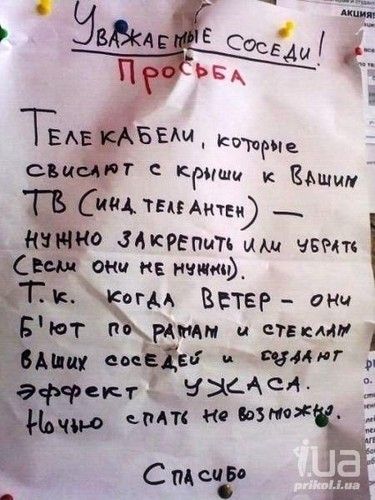 АКЦИЯ
Уважаемые соседи!
Просьба
Телекабели, которые
свисают с крыши к Вашим
ТВ (инд. телеантен) —
нужно закрепить или убрать
(если они не нужны).
Т.к. когда Ветер – они
б'ют по рамам и стеклам
ваших соседей и создают
эффект УЖАСА.
Ночью спать не возможно.
Спасибо
i.ua
prikol.i.ua